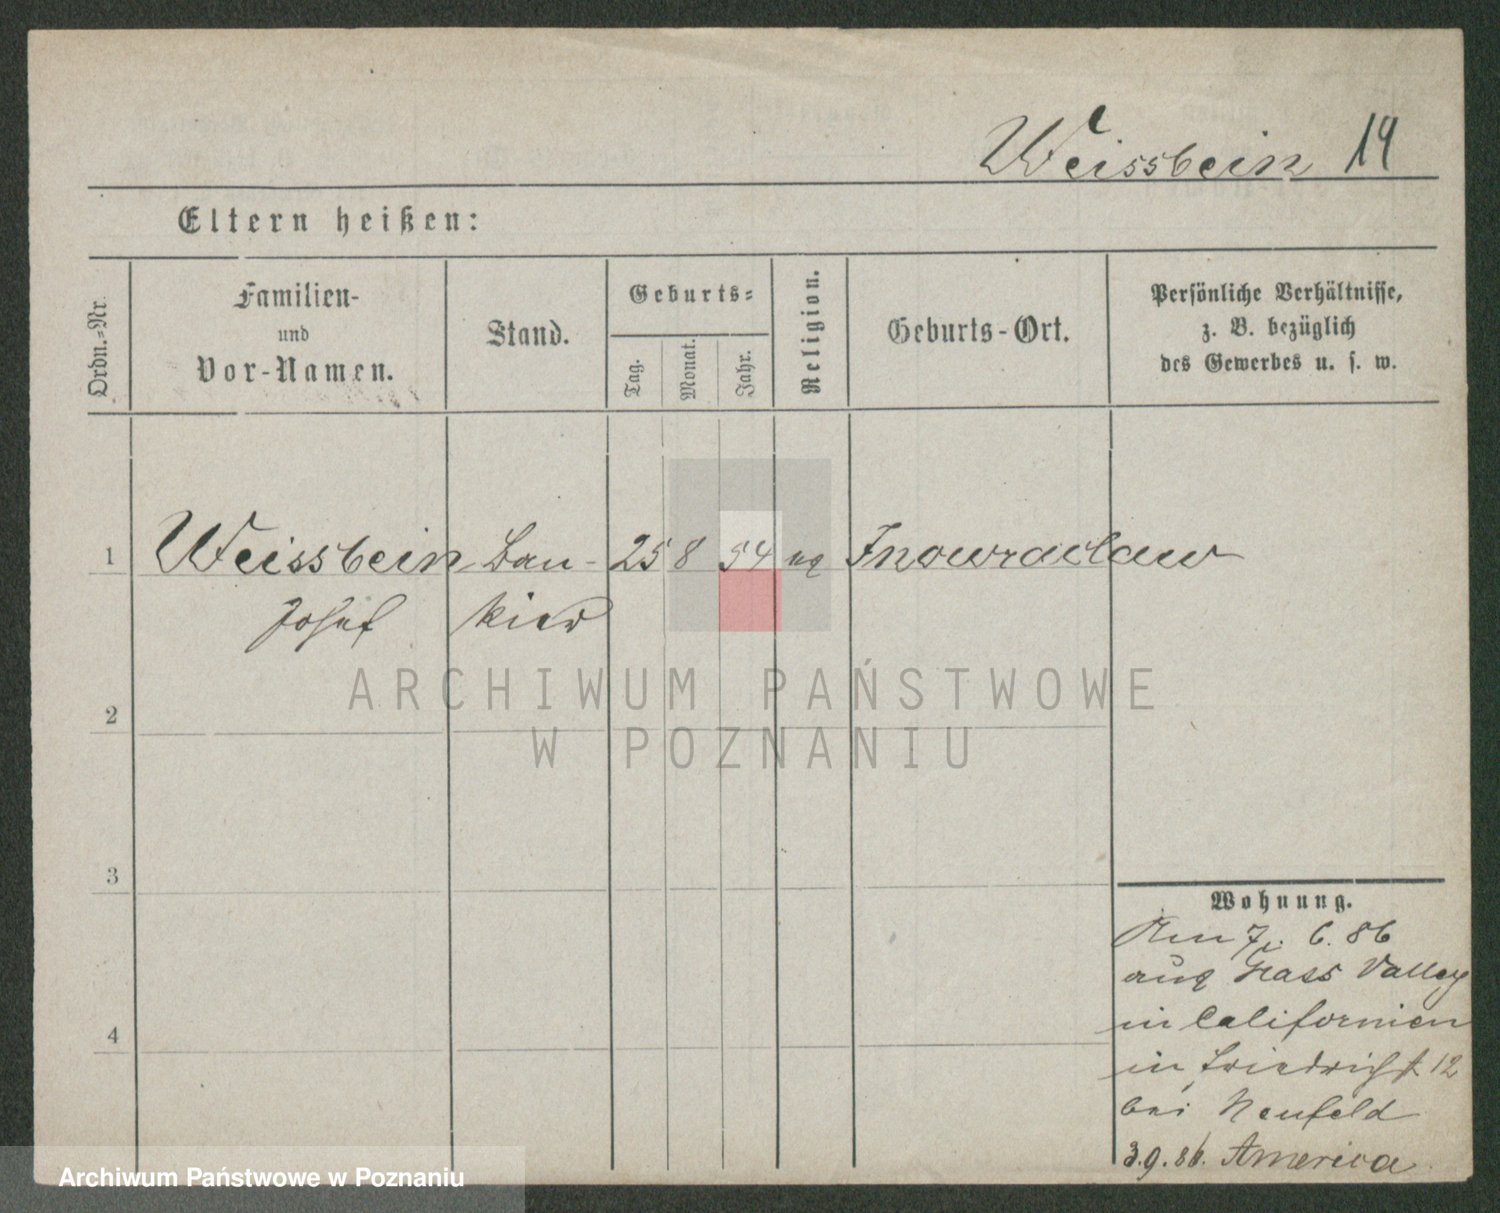 Weissbein 14
Eltern heißen:
Ordn.-Nr.
Familien-
und
Vor-Namen.
Stand.
Geburts-
Tag.
Monat.
Jahr.
Religion.
Geburts-Ort.
Persönliche Verhältnisse,
z. B. bezüglich
des Gewerbes u. s. w.
1 Weissbein Ban- 25 8 54 Inowraclaw
Josef kier
2
3
4
Wohnung.
Am 7. 6. 86
aus Grass Valley
in Californien
in Friedrichst 12
bei Neufeld
3.9.86. America
ARCHIWUM PAŃSTWOWE
W POZNANIU
Archiwum Państwowe w Poznaniu